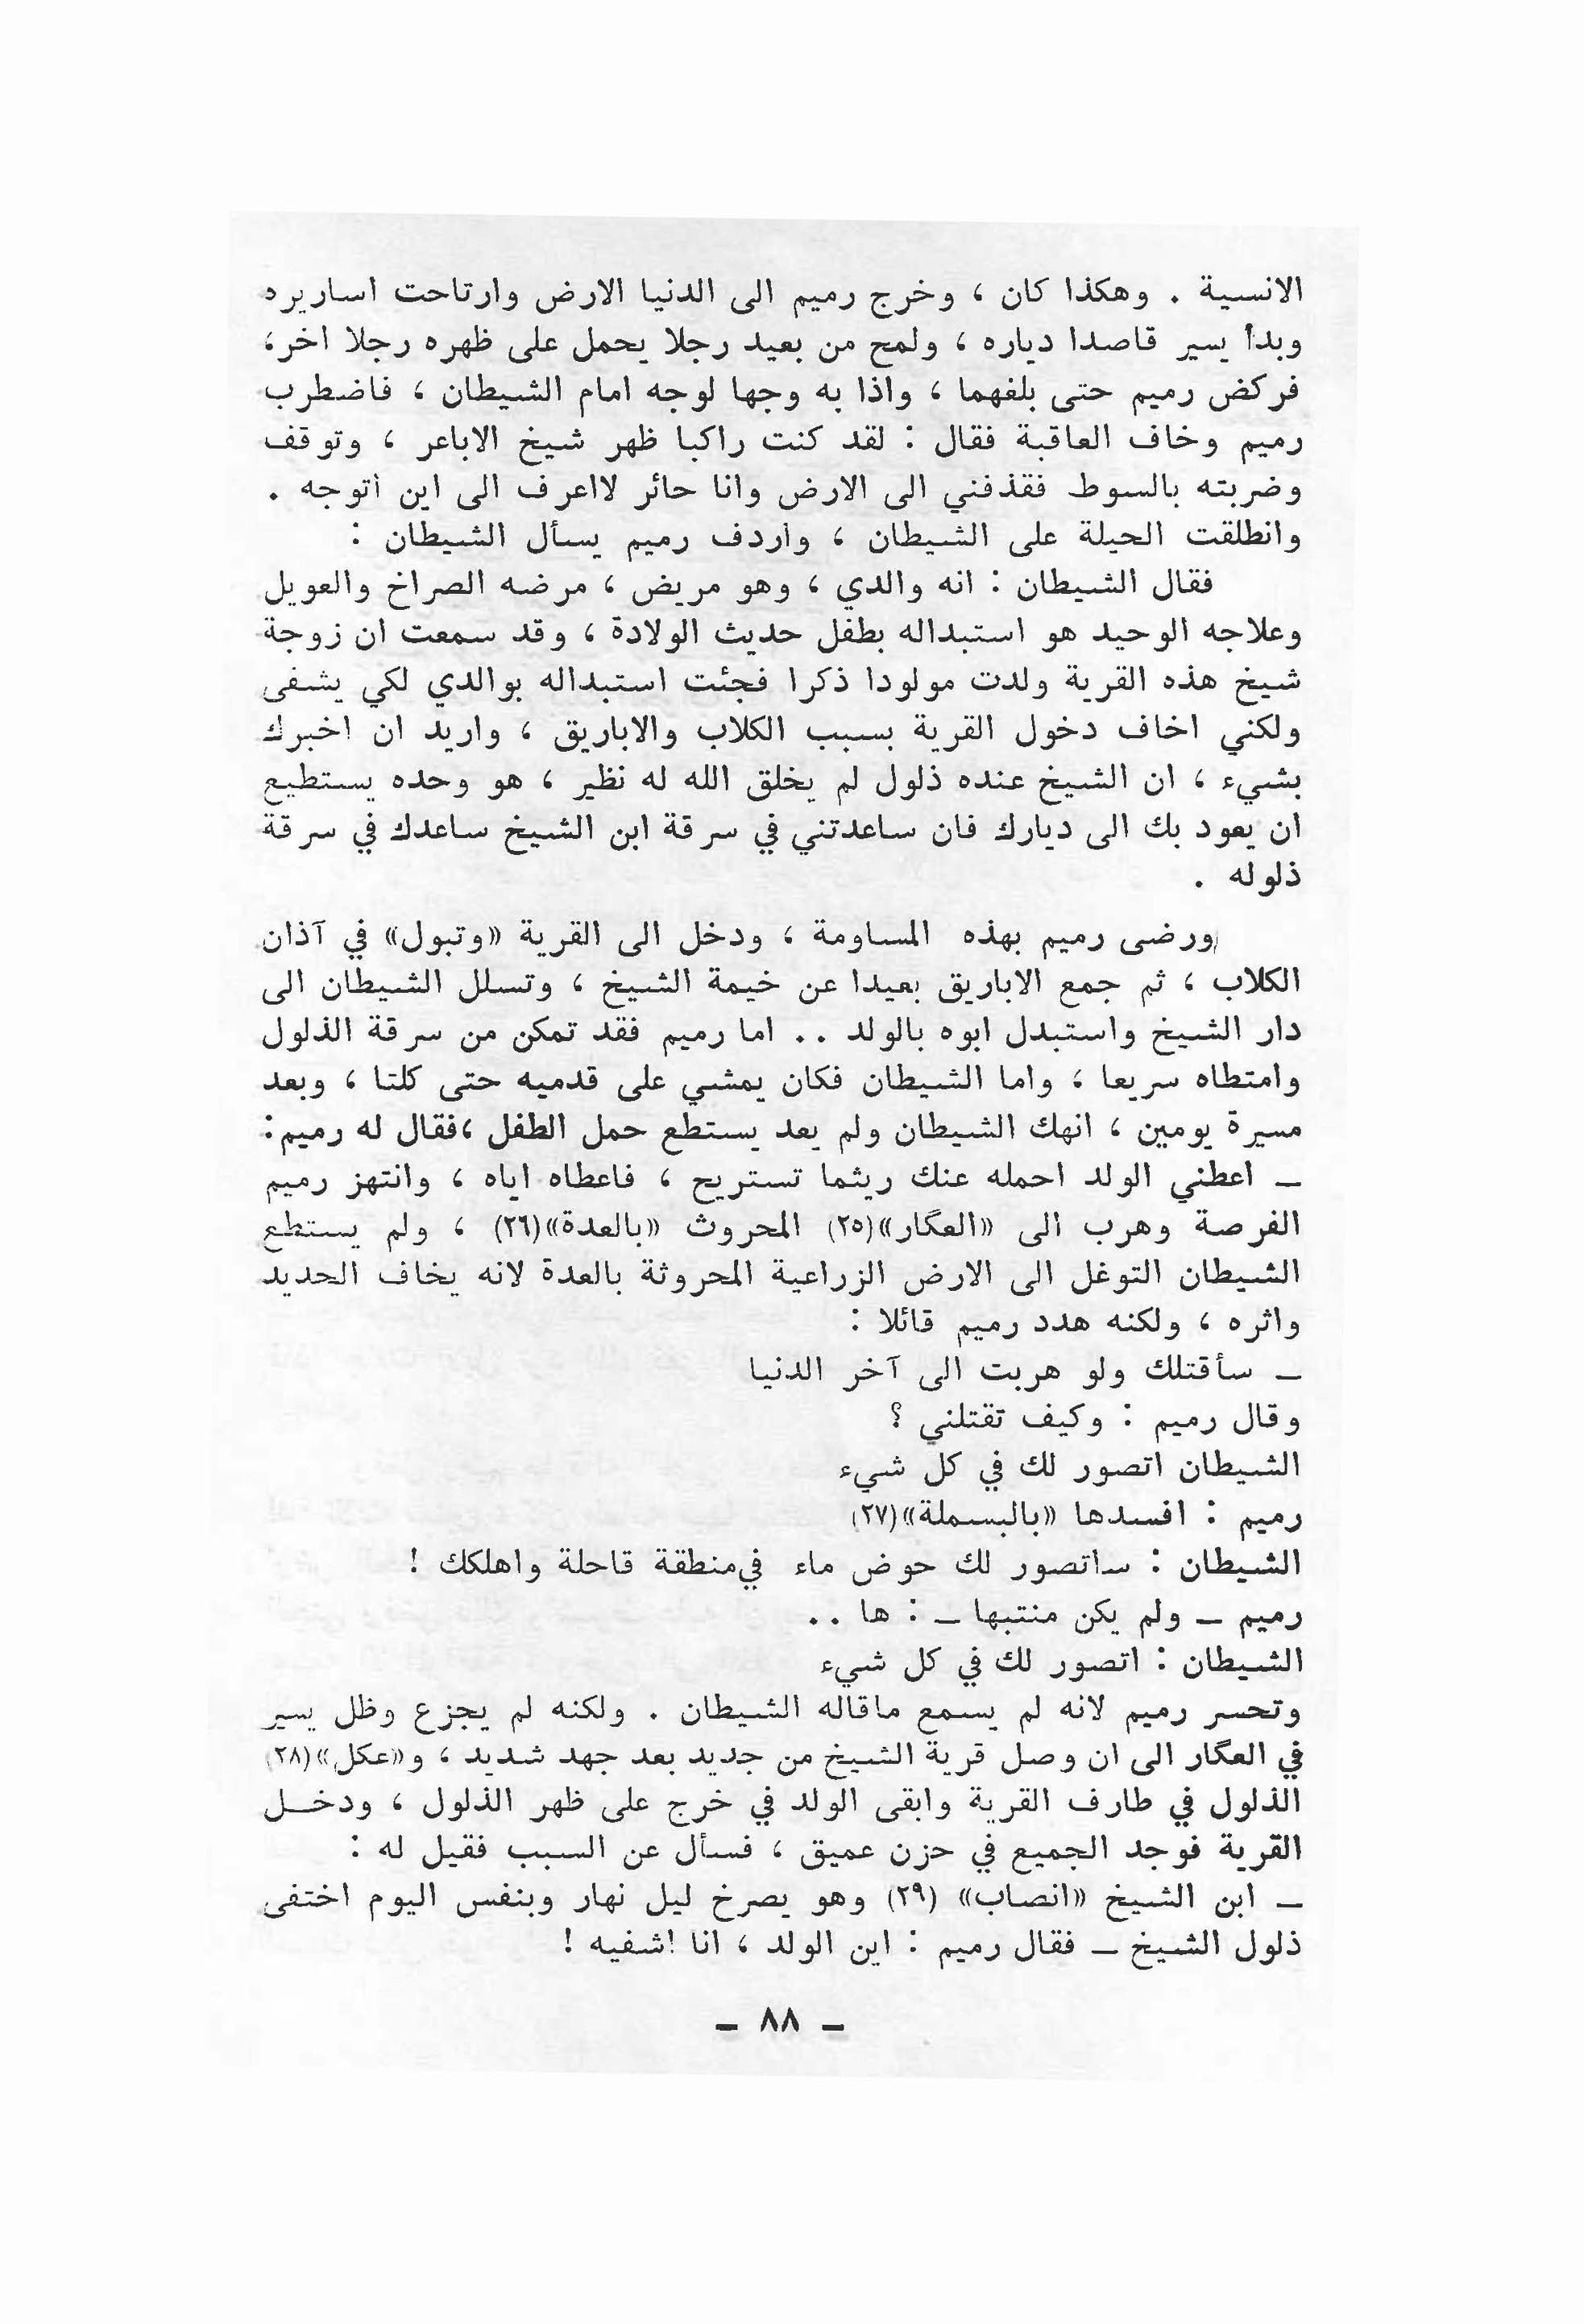 الانسية . وهكذا كان ، وخرج رميم الى الدنيا الارض وارتاحت اساريره
وبدأ يسير قاصدا دياره ، ولمح من بعيد رجلا يحمل على ظهره رجلا اخر،
فركض رميم حتى بلغهما ، واذا به وجها لوجه امام الشيطان ، فاضطرب
رميم وخاف العاقبة فقال : لقد كنت راكبا ظهر شيخ الاباعر ، وتوقف
وضربته بالسوط فقذفني الى الارض وانا حائر لااعرف الى اين أتوجه .
وانطلقت الحيلة على الشيطان ، وأردف رميم يسأل الشيطان :
فقال الشيطان : انه والدي ، وهو مريض ، مرضه الصراخ والعويل
وعلاجه الوحيد هو استبداله بطفل حديث الولادة ، وقد سمعت ان زوجة
شيخ هذه القرية ولدت مولودا ذكرا فجئت استبداله بوالدي لكي يشفى
ولكني اخاف دخول القرية بسبب الكلاب والاباريق ، واريد ان اخبرك
بشيء ، ان الشيخ عنده ذلول لم يخلق الله له نظير ، هو وحده يستطيع
ان يعود بك الى ديارك فان ساعدتني في سرقة ابن الشيخ ساعدك في سرقة
ذلوله .
ورضى رميم بهذه المساومة ، ودخل الى القرية «وتبول» في آذان
الكلاب ، ثم جمع الاباريق بعيدا عن خيمة الشيخ ، وتسلل الشيطان الى
دار الشيخ واستبدل ابوه بالولد .. اما رميم فقد تمكن من سرقة الذلول
وامتطاه سريعا ، واما الشيطان فكان يمشي على قدميه حتى كلتا ، وبعد
مسيرة يومين ، انهك الشيطان ولم يعد يستطع حمل الطفل ،فقال له رميم:
ـ اعطني الولد احمله عنك ريثما تستريح ، فاعطاه اياه ، وانتهز رميم
الفرصة وهرب الى «العگار»(٢٥) المحروث «بالعدة»(٢٦) ، ولم يستطع
الشيطان التوغل الى الارض الزراعية المحروثة بالعدة لانه يخاف الحديد
واثره ، ولكنه هدد رميم قائلا :
ـ سأقتلك ولو هربت الى آخر الدنيا
وقال رميم : وكيف تقتلني ؟
الشيطان اتصور لك في كل شيء
رميم : افسدها «بالبسملة»(٢٧)
الشيطان : ساتصور لك حوض ماء في منطقة قاحلة واهلكك !
رميم ـ ولم يكن منتبها ـ : ها ..
الشيطان : اتصور لك في كل شيء
وتحسر رميم لانه لم يسمع ماقاله الشيطان . ولكنه لم يجزع وظل يسير
في العگار الى ان وصل قرية الشيخ من جديد بعد جهد شديد ، و«عكل»(٢٨)
الذلول في طارف القرية وابقى الولد في خرج على ظهر الذلول ، ودخـل
القرية فوجد الجميع في حزن عميق ، فسأل عن السبب فقيل له :
ـ ابن الشيخ «انصاب» (٢٩) وهو يصرخ ليل نهار وبنفس اليوم اختفى
ذلول الشيخ ـ فقال رميم : اين الولد ، انا اشفيه !
ـ ٨٨ ـ